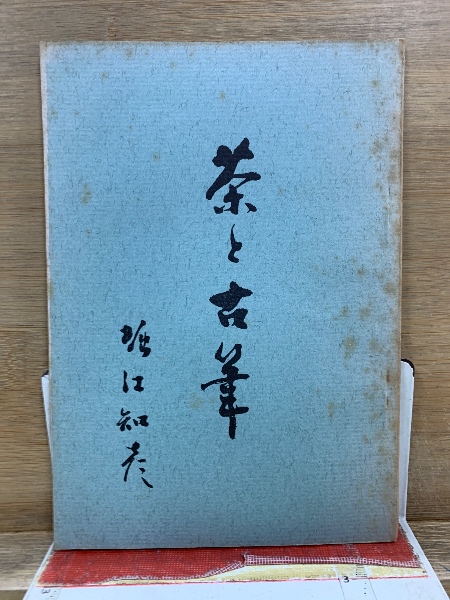 茶と古筆
堀江知彦
3
3